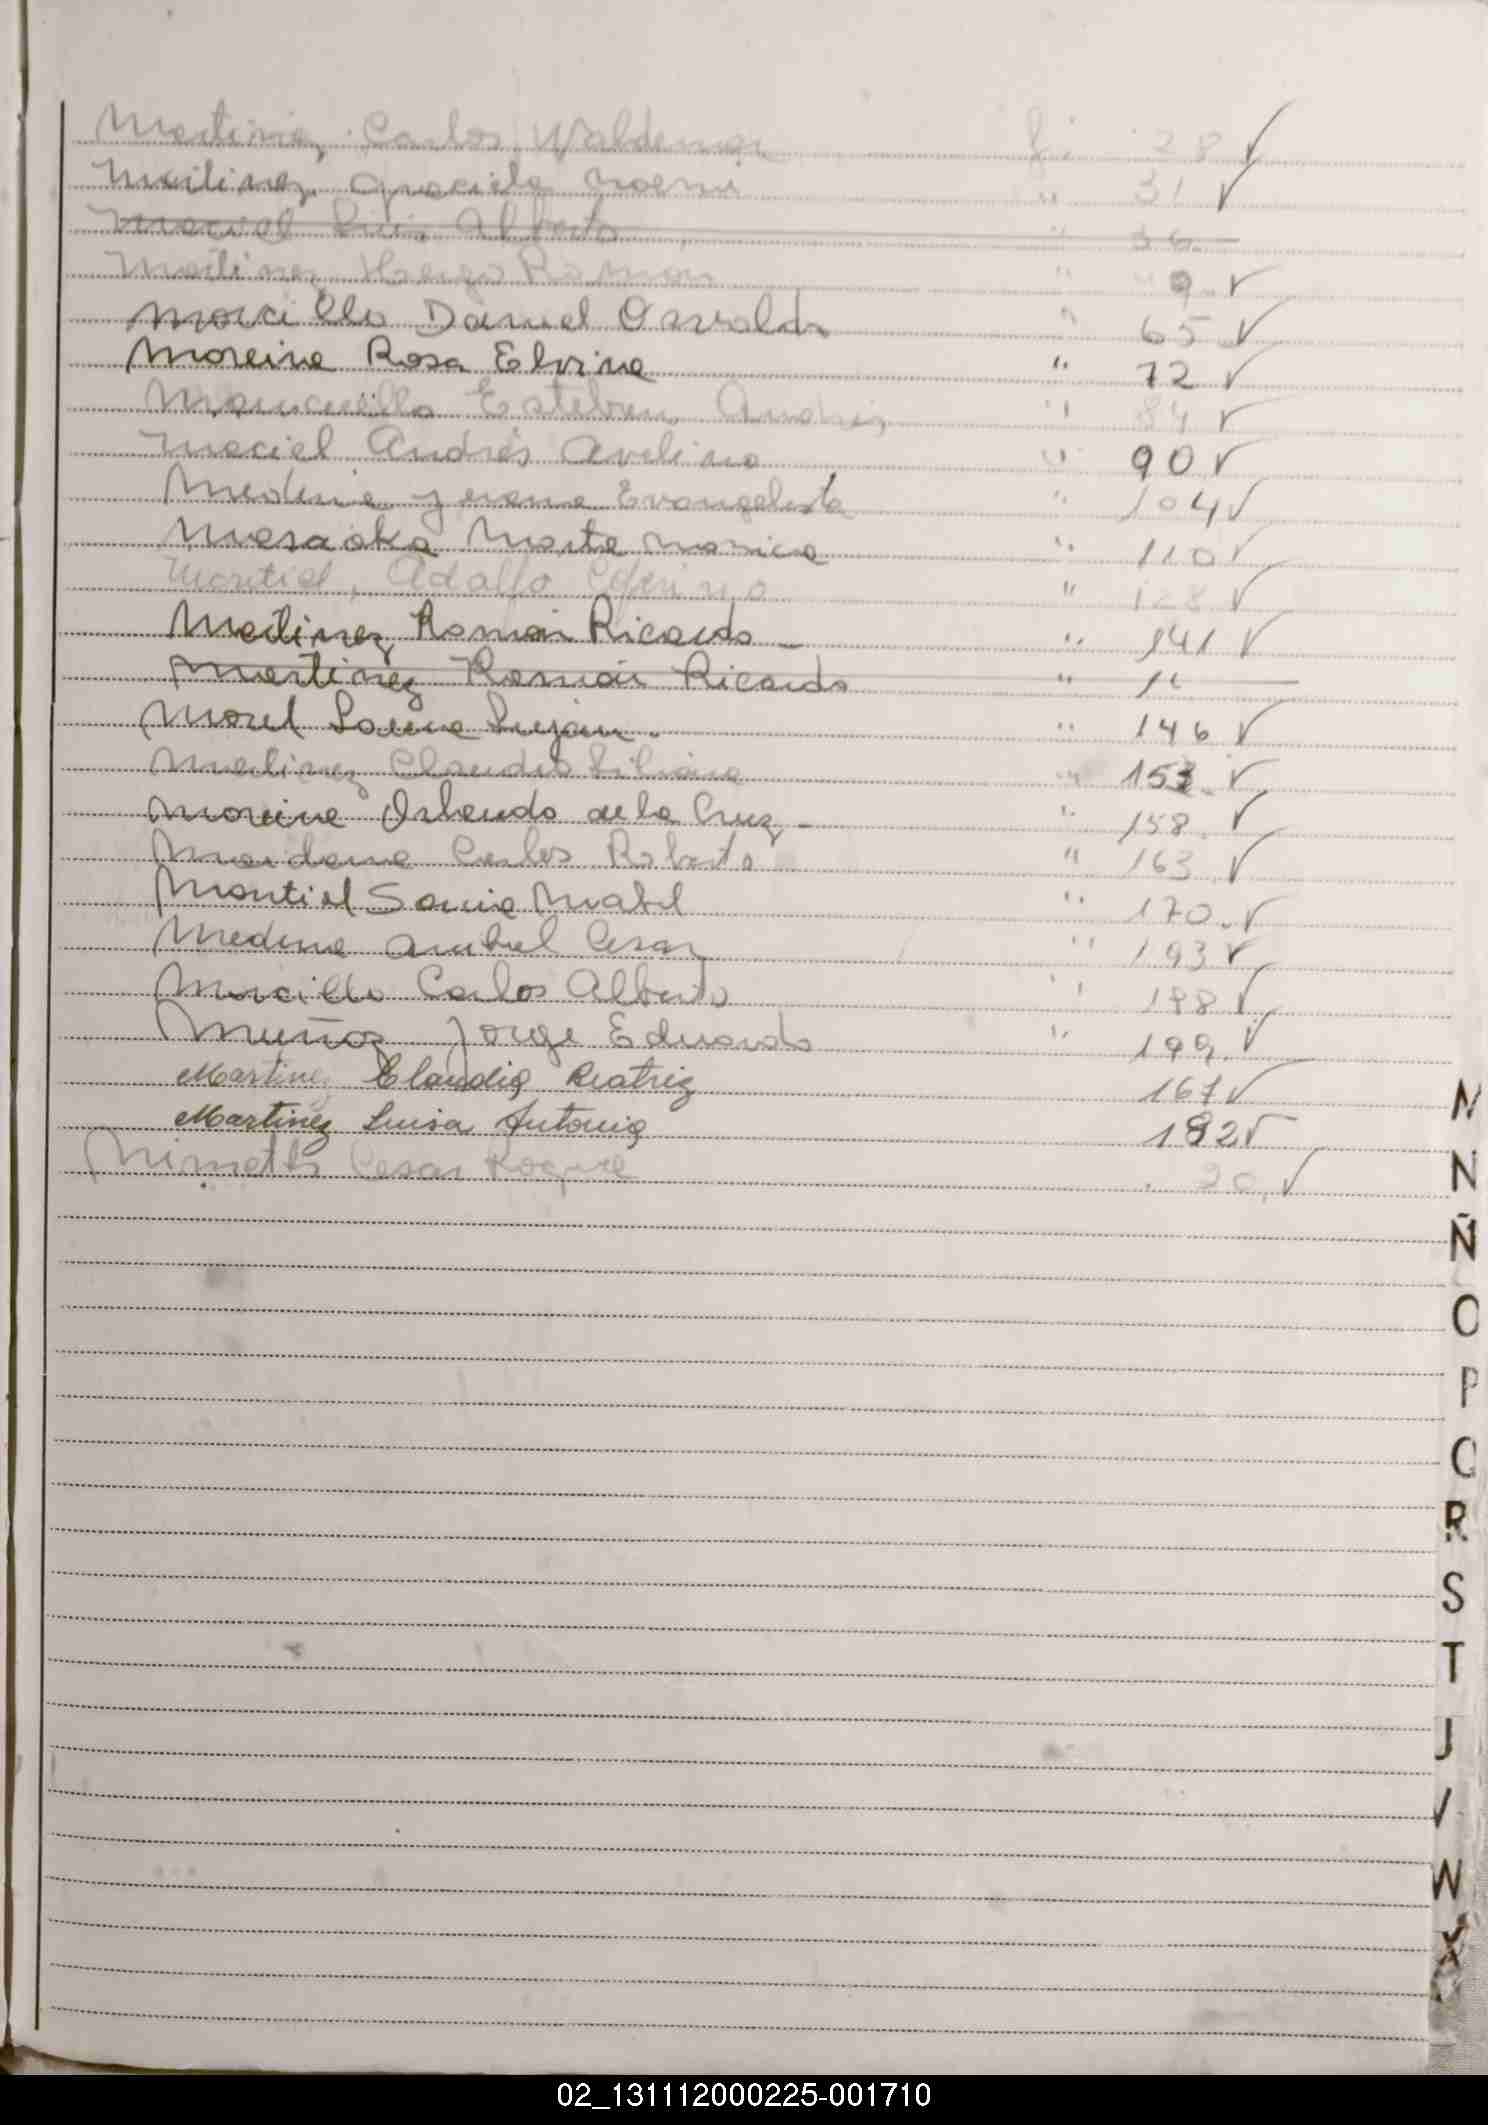 Martinez, Carlos Waldemar fi. 28 ✓
Martinez Graciela Noemi " 31 ✓
Maciel Luis Alberto " 36
Martinez Hugo Ramon " 9. ✓
Morcillo Daniel Osvaldo " 65 ✓
Moreira Rosa Elvira " 72 ✓
Mancuello Esteban Andres " 84 ✓
Maciel Andrés Avelino " 90 ✓
Medina Evangelista " 104 ✓
Masaoka Marta Monica " 110 ✓
Montiel, Adolfo Ceferino " 128 ✓
Martinez Ramón Ricardo " 141 ✓
Martinez Ramón Ricardo "
Morel Laura Lujan. " 146 ✓
Martinez Claudia Liliana " 153. ✓
Moreira Orlando de la Cruz " 158. ✓
Maidana Carlos Roberto " 163 ✓
Montiel Sonia Mabel " 170. ✓
Medina Anibal Cesar " 193 ✓
Morcillo Carlos Alberto " 198 ✓
Muñoz Jorge Eduardo " 199. ✓
Martinez Claudia Beatriz 167 ✓
Martinez Luisa Antonia 192 ✓
Cesar Roque 20, ✓
M
N
Ñ
O
P
Q
R
S
T
U
V
W
X
02_131112000225-001710